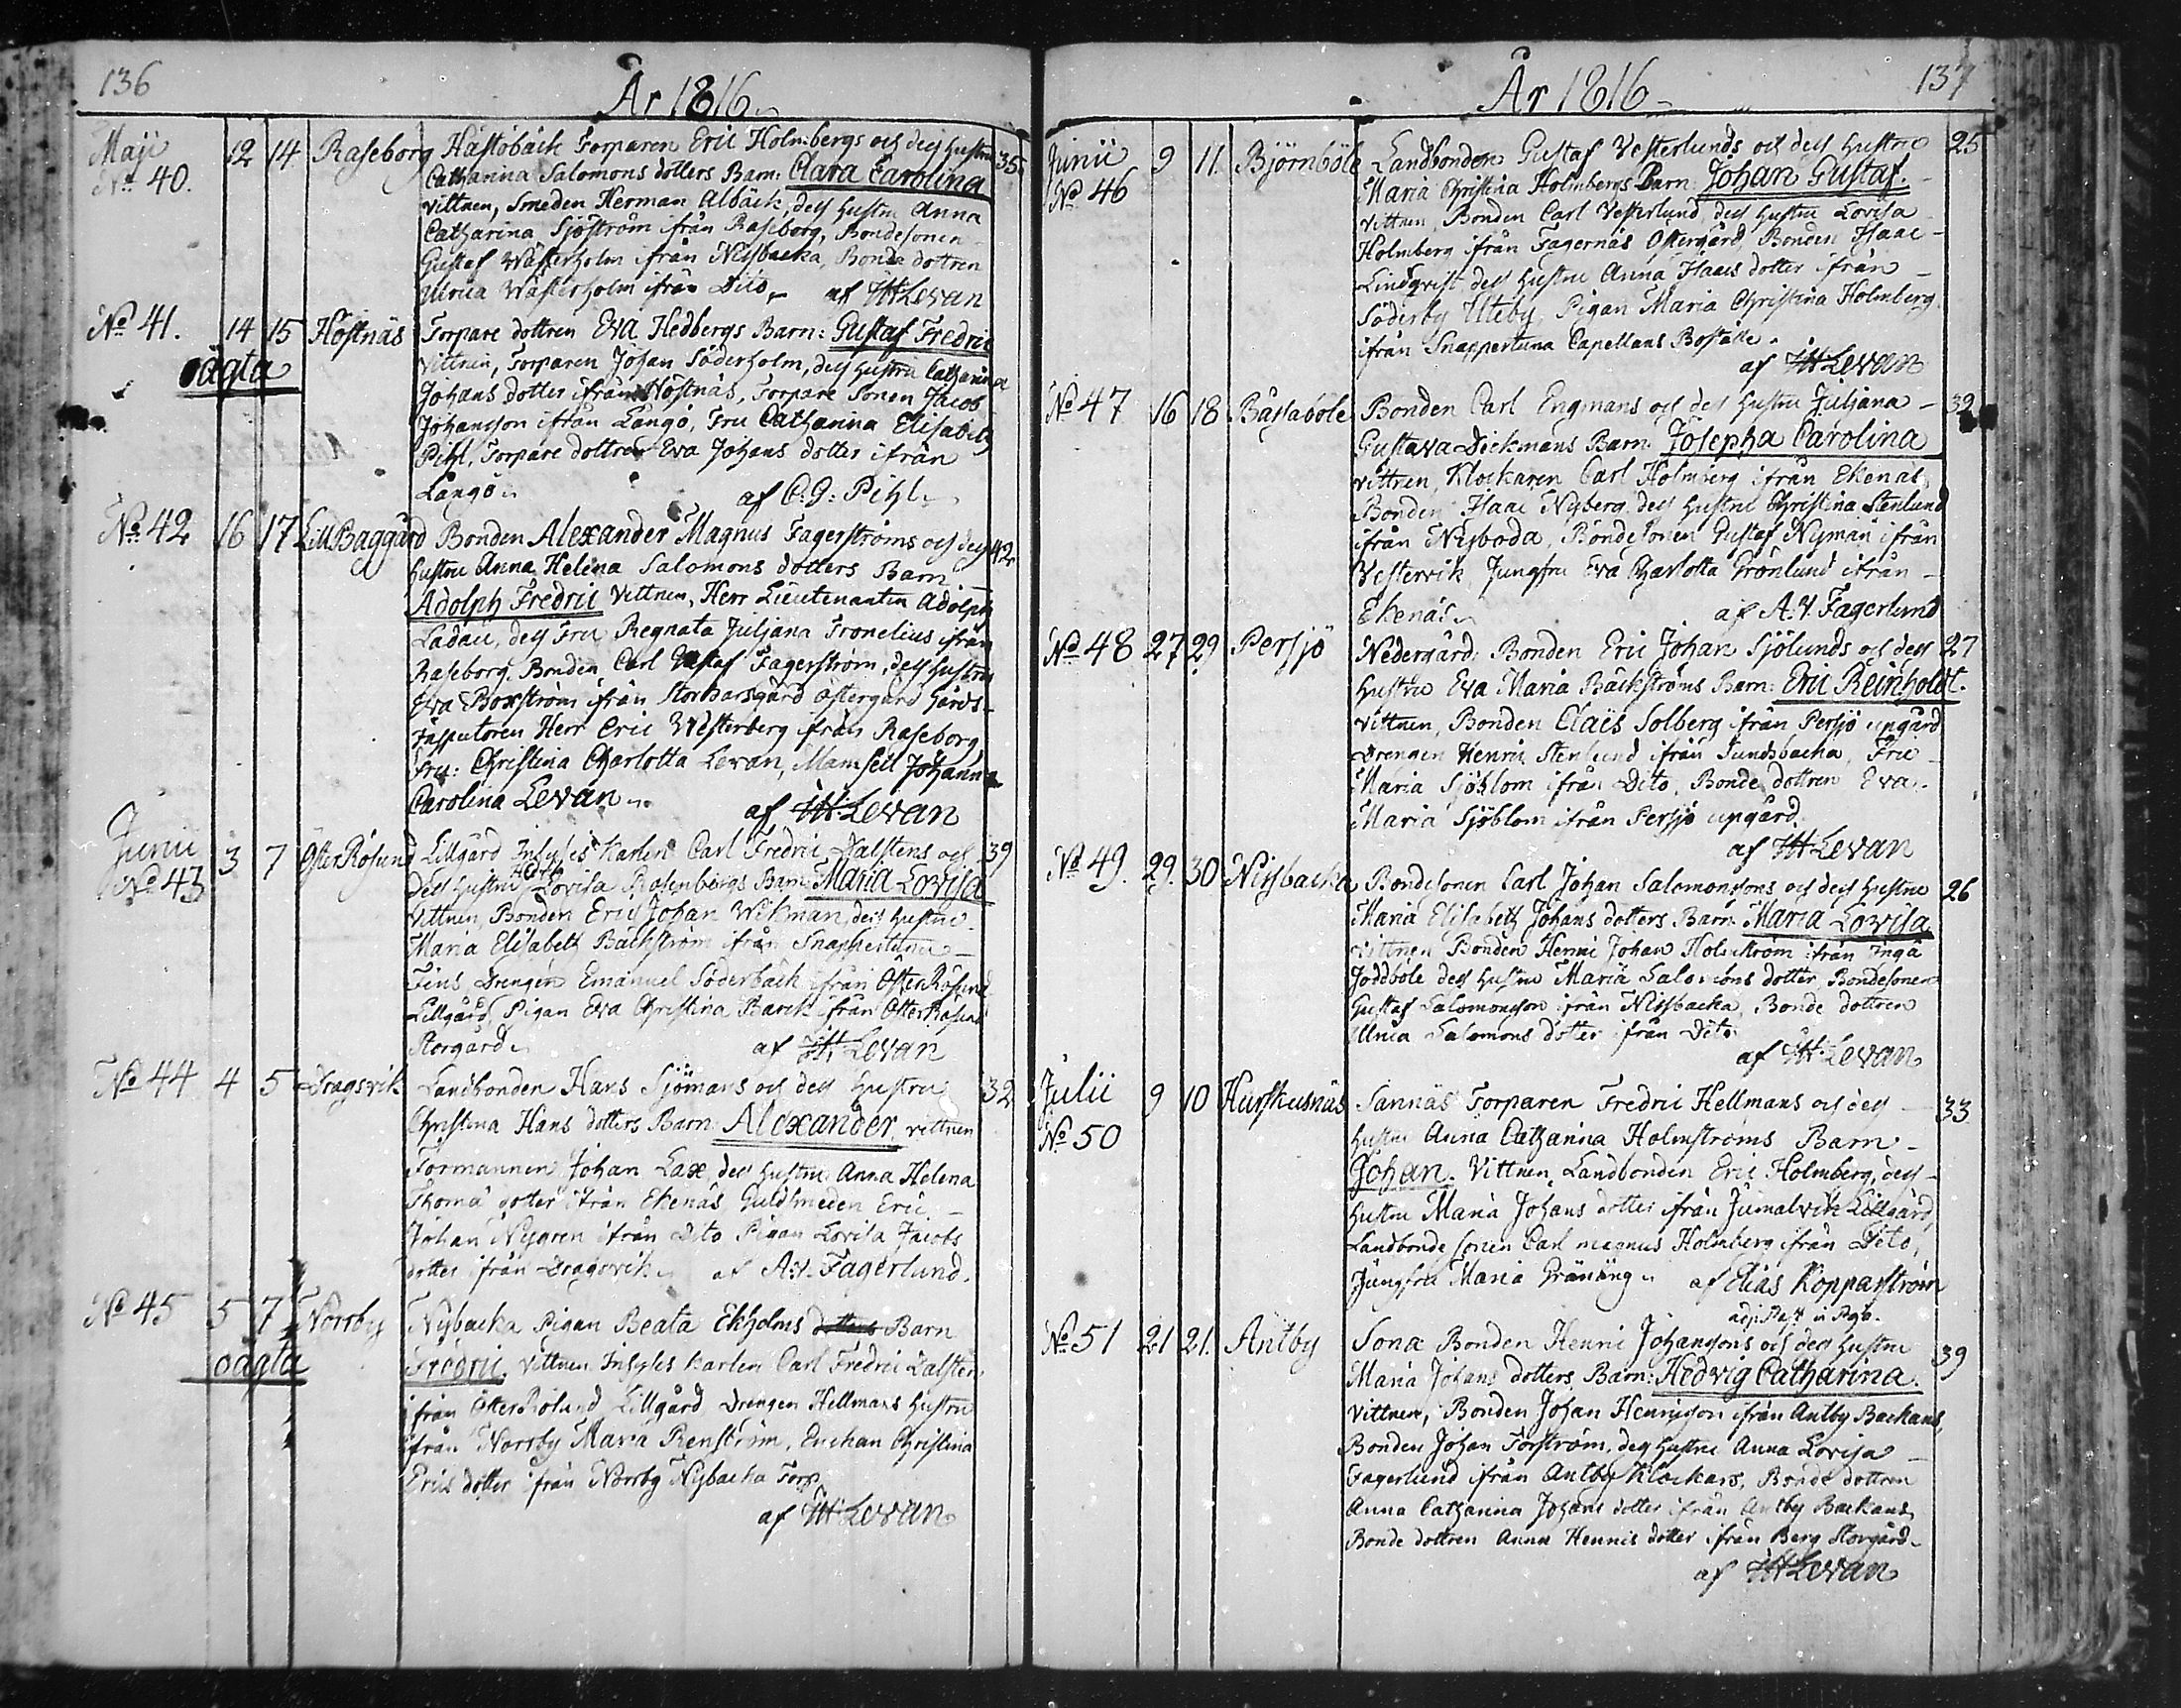 136
År 1816
Maji
No 40.
12 14 Raseborg Hästöbäck Torparen Eric Holmbergs och dess hustru 35
Catharina Salomons dotters Barn: Clara Carolina
vittnen, Smeden Herman Albäck, dess hustru Anna
Catharina Sjöström ifrån Raseborg, Bondesonen
Gustaf Wästerholm ifrån Nissbacka, Bonde dottren
Ulrica Wästerholm ifrån Dito. af JH Levan
No 41. 14 15 Höstnäs Torpare dottren Eva Hedbergs Barn: Gustaf Fredric
oägta
vittnen, Torparen Johan Söderholm, dess hustru Catharina
Johans dotter ifrån Höstnäs, Torpare Sonen Jacob
Johansson ifrån Långö, Fru Catharina Elisabeth
Pihl, Torpare dottren Eva Johans dotter ifrån
Långö. af C: G: Pihl.
No 42 16 17 Lill Baggård Bonden Alexander Magnus Fagerströms och dess 42
hustru Anna Helena Salomons dotters Barn
Adolph Fredric Vittnen, Herr Lieutenanten Adolph
Ladau, dess Fru Regnata Juljana Fronelius ifrån
Raseborg. Bonden Carl Gustaf Fagerström, dess hustru
Eva Boxström ifrån Östergård Härds-
Herr Eric Westerberg ifrån Raseborg
fru: Christina Charlotta Levan, Mamsell Johanna
Carolina Levan. af JH Levan
Junii
No 43
3 7 Öster Rösund Lillgård Inhyses Karlen Carl Fredric Dalstens och 39
dess hustru Hedv: Lovisa Rosenbergs Barn: Maria Lovisa
Vittnen, Bonden Eric Johan Wikman, dess hustru
Maria Elisabeth Bäckström ifrån Snappertuna
Fins, Drengen Emanuel Söderbäck ifrån Öster Rösund
Lillgård, Pigan Eva Christina Barck ifrån Öster Rösund
Storgård. af JH Levan
No 44 4 5 Dragsvik Landbonden Hans Sjömans och dess hustru 32
Christina Hans dotters Barn: Alexander. vittnen
Formannen Johan Lax, dess hustru Anna Helena
Thoma dotter ifrån Ekenäs Guldsmeden Eric
Johan Nygren ifrån Dito Pigan Lovisa Jacobs
dotter ifrån Dragsvik. af A.V. Fagerlund.
No 45 5 7 Norrby Nybacka Pigan Beata Ekholms dotters Barn
oägta
Fredric. vittnen Inhyses karlen Carl Fredric Dalsten
ifrån Öster Rösund Lillgård, Drengen Hellmans hustru
ifrån Norrby Maria Renström, Enckan Christina
Erics dotter ifrån Norrby Nybacka Torp.
af JH Levan
137
År 1816
Junii
No 46
9 11. Björnböle Landbonden Gustaf Vesterlunds och dess hustru 25
Maria Christina Holmbergs Barn: Johan Gustaf.
vittnen, Bonden Carl Vesterlund, dess hustru Lovisa
Holmberg ifrån Fagernäs Östergård, Bonden Isaac
Lindqvist dess hustru Anna Isaacs dotter ifrån
Söderby Uteby, Pigan Maria Christina Holmberg
ifrån Snappertuna Capellans Boställe.
af JH Levan
No 47 16 18 Båssaböle Bonden Carl Engmans och dess hustru Juljana 39
Gustava Dickmans Barn: Josepha Carolina
vittnen, Klockaren Carl Holmberg ifrån Ekenäs,
Bonden Isaac Nyberg dess hustru Christina Stenlund
ifrån Nyboda, Bondesonen Gustaf Nyman ifrån
Vestervik, Jungfru Eva Charlotta Grönlund ifrån
Ekenäs. af A.V. Fagerlund
No 48 27 29 Persjö Nedergård. Bonden Eric Johan Sjölunds och dess 27
hustru Eva Maria Bäckströms Barn: Eric Reinholdt.
vittnen, Bonden Claës Solberg ifrån Persjö upgård
Drengen Henric Stenlund ifrån Sundsbacka, Fru
Maria Sjöblom ifrån Dito, Bonde dottren Eva
Maria Sjöblom ifrån Persjö upgård.
af JH Levan
No 49. 29. 30 Nissbacka Bondesonen Carl Johan Salomonssons och dess hustru 26
Maria Elisabeth Johans dotters Barn: Maria Lovisa
vittnen Bonden Henric Johan Holmström ifrån Ingå
Joddböle dess hustru Maria Salomons dotter, Bondesonen
Gustaf Salomonsson ifrån Nissbacka, Bonde dottren
Ulrica Salomons dotter ifrån Dito
af JH Levan
Julii
No 50
9 10 Harskusnäs Sannäs Torparen Fredric Hellmans och dess 33
hustru Anna Catharina Holmströms Barn
Johan. Vittnen, Landbonden Eric Holmberg, dess
hustru Maria Johans dotter ifrån Jumalvik Lillgård,
Landbonde sonen Carl magnus Holmberg ifrån Dito,
Jungfru Maria Gränäng. af Elias Kopparström
adj: Past: in Pojo.
No 51 21 21. Antby Sona Bonden Henric Johanssons och dess hustru 39
Maria Johans dotters Barn: Hedvig Catharina.
Vittnen, Bonden Johan Henricsson ifrån Antby Backans,
Bonden Johan Forström, dess hustru Anna Lovisa
Fagerlund ifrån Antby Klockars, Bonde dottren
Anna Catharina Johans dotter ifrån Antby Backans,
Bonde dottren Anna Henrics dotter ifrån Berg Storgård.
af JH Levan